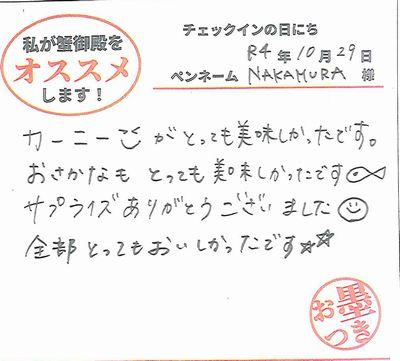 私が蟹御殿を
オススメ
します！
チェックインの日にち
R4年10月29日
ペンネーム NAKAMURA 様
カーニーがとっても美味しかったです。
おさかなも とっても美味しかったです
サプライズありがとうございました
全部とってもおいしかったです☆☆
お墨つき